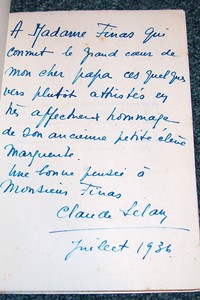 A Madame Finas qui
connut le grand cœur de
mon cher papa ces quelques
vers plutôt attristés en
très affectueux hommage
de son ancienne petite élève
Marguerite.
Une bonne pensée à
Monsieur Finas
Claude
Juillet 1936